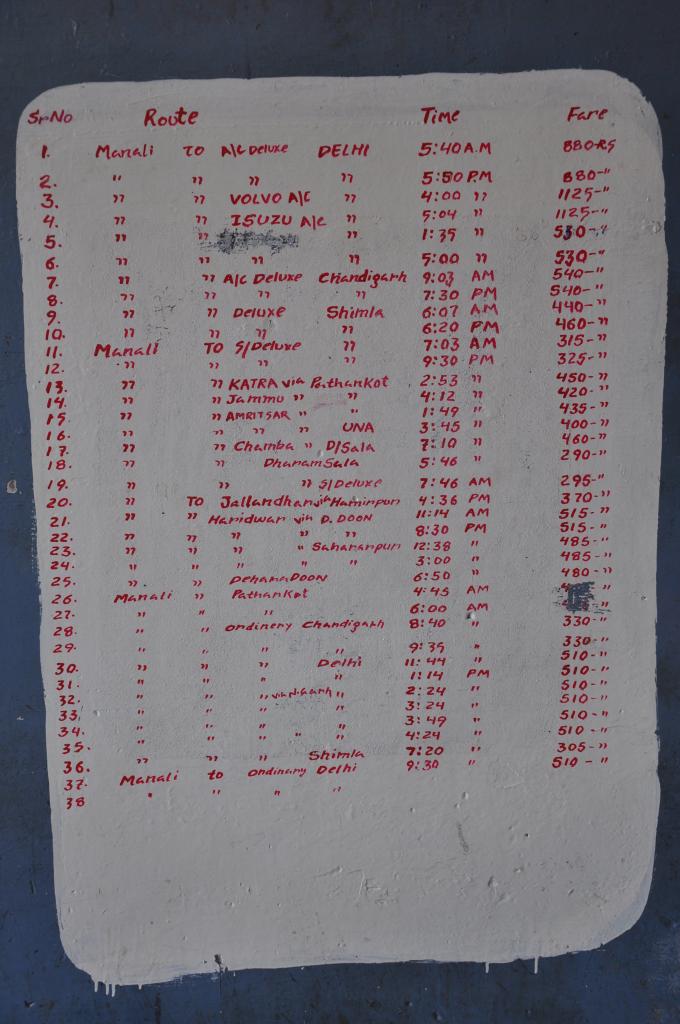 Sr No Route Time Fare
1. Manali TO A/C Deluxe DELHI 5:40 A.M 880-RS
2. " " " " 5:50 P.M 880-"
3. " " VOLVO A/C " 4:00 " 1125-"
4. " " ISUZU A/C " 5:04 " 1125-"
5. " " " 1:35 " 530-"
6. " " " " 5:00 " 530-"
7. " " A/C Deluxe Chandigarh 9:03 AM 540-"
8. " " " " 7:30 PM 540-"
9. " " Deluxe Shimla 6:07 AM 440-"
10. " " " " 6:20 PM 460-"
11. Manali TO S/Deluxe " 7:03 AM 315-"
12. " " " " 9:30 PM 325-"
13. " " KATRA via Pathankot 2:53 " 450-"
14. " " Jammu " " 4:12 " 420-"
15. " " AMRITSAR " " 1:49 " 435-"
16. " " " " UNA 3:45 " 400-"
17. " " Chamba " D/Sala 7:10 " 460-"
18. " DharamSala 5:46 " 290-"
19. " " " S/Deluxe 7:46 AM 295-"
20. " TO Jallandhar via Hamirpur 4:36 PM 370-"
21. " " Haridwar via D.DOON 11:14 AM 515-"
22. " " " " " 8:30 PM 515-"
23. " " " " Saharanpur 12:38 " 485-"
24. " " " " " 3:00 " 485-"
25. " " DehanaDOON 6:50 " 480-"
26. Manali " Pathankot 4:45 AM "
27. " " " 6:00 AM "
28. " " ordinery Chandigarh 8:40 " 330-"
29. " " " " 9:35 " 330-"
30. " " " Delhi 11:44 " 510-"
31. " " " " 1:14 PM 510-"
32. " " " " 2:24 " 510-"
33. " " " " 3:24 " 510-"
34. " " " " 3:49 " 510-"
35. " " " " " 4:24 " 510-"
36. " " " Shimla 7:20 " 305-"
37. Manali to ordinary Delhi 9:30 " 510-"
38 " " " "